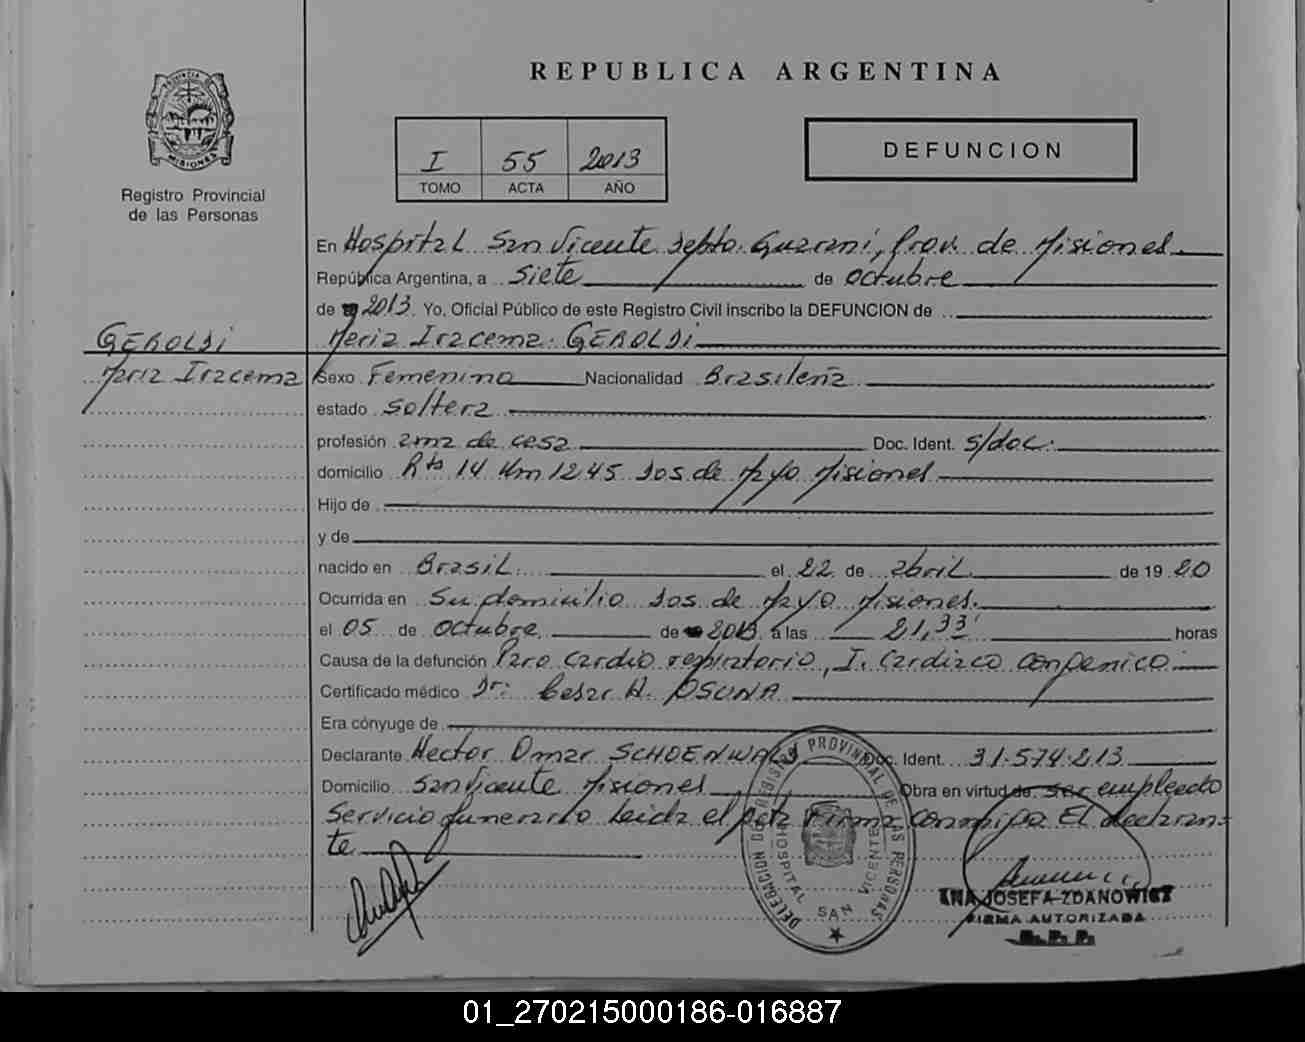 REPUBLICA ARGENTINA
PROVINCIA DE MISIONES
Registro Provincial
de las Personas
I 55 2013
TOMO ACTA AÑO
DEFUNCION
En Hospital San Vicente Depto. Guarani, Prov. de Misiones
República Argentina, a siete de octubre
de 2013. Yo, Oficial Público de este Registro Civil inscribo la DEFUNCION de
GEROLDI
Maria Iracema. GEROLDI
Maria Iracema
Sexo Femenino Nacionalidad Brasileña
estado soltera
profesión ama de casa Doc. Ident. s/doc.
domicilio Rta 14 Km 1245 Dos de Myo Misiones
Hijo de
y de
nacido en Brasil. el 22 de abril. de 19 20
Ocurrida en Su domicilio Dos de Myo Misiones.
el 05 de octubre de 2013 a las 21,33' horas
Causa de la defunción Paro cardio respiratorio, I. cardiaco
Certificado médico Dr: Cesar A. OSUNA
Era cónyuge de
Declarante Hector Omar SCHOENWALD Doc. Ident. 31.574.213
Domicilio San Vicente Misiones Obra en virtud de ser empleado
servicio funerario leida el acta Firma conmigo El declaran-
te
DELEGACION DEL REGISTRO PROVINCIAL DE LAS PERSONAS
HOSPITAL SAN VICENTE
ANA JOSEFA ZDANOWICZ
FIRMA AUTORIZADA
R. P. P.
01_270215000186-016887